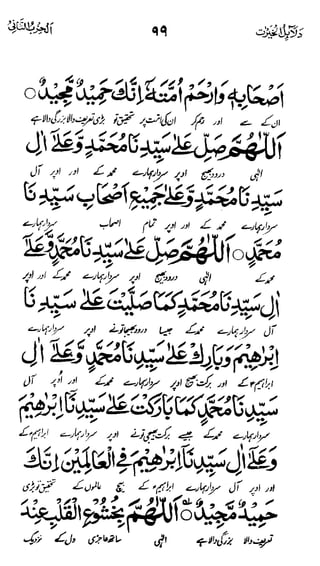 دلائل الخیرات ۹۹ الحزب الثانی
اَصْحَابِهٖ وَارْحَمْ اُمَّتَهٗ اِنَّكَ حَمِيْدٌ مَّجِيْدٌ ○
ان کے سے اور رحم کر ان کی امت پر تحقیق تو بڑی تعریف والا بزرگی والا ہے
اَللّٰهُمَّ صَلِّ عَلٰى سَيِّدِنَا مُحَمَّدٍ وَّعَلٰٓى اٰلِ
الٰہی درود بھیج اوپر سردار ہمارے محمد کے اور اوپر آل
سَيِّدِنَا مُحَمَّدٍ وَّعَلٰى جَمِيْعِ اَصْحَابِ سَيِّدِنَا
سردار ہمارے محمد کے اور اوپر تمام اصحاب سردار ہمارے
مُحَمَّدٍ ○ اَللّٰهُمَّ صَلِّ عَلٰى سَيِّدِنَا مُحَمَّدٍ وَّعَلٰٓى
محمد کے الٰہی درود بھیج اوپر سردار ہمارے محمد کے اور اوپر
اٰلِ سَيِّدِنَا مُحَمَّدٍ كَمَا صَلَّيْتَ عَلٰى سَيِّدِنَا
آل سردار ہمارے محمد کے جیسا درود بھیجا تونے اوپر سردار ہمارے
اِبْرٰهِيْمَ وَبَارِكْ عَلٰى سَيِّدِنَا مُحَمَّدٍ وَّعَلٰٓى اٰلِ
ابراہیم کے اور برکت بھیج اوپر سردار ہمارے محمد کے اور اوپر آل
سَيِّدِنَا مُحَمَّدٍ كَمَا بَارَكْتَ عَلٰى سَيِّدِنَآ اِبْرٰهِيْمَ
سردار ہمارے محمد کے جیسے برکت بھیجی تونے اوپر سردار ہمارے ابراہیم کے
وَعَلٰٓى اٰلِ سَيِّدِنَآ اِبْرٰهِيْمَ فِى الْعَالَمِيْنَ اِنَّكَ
اور اوپر آل سردار ہمارے ابراہیم کے بیچ عالموں کے تحقیق تو بڑی
حَمِيْدٌ مَّجِيْدٌ ○ اَللّٰهُمَّ بِخُشُوْعِ الْقَلْبِ عِنْدَ
تعریف والا بزرگی والا ہے الٰہی ساتھ عاجزی دل کے نزدیک